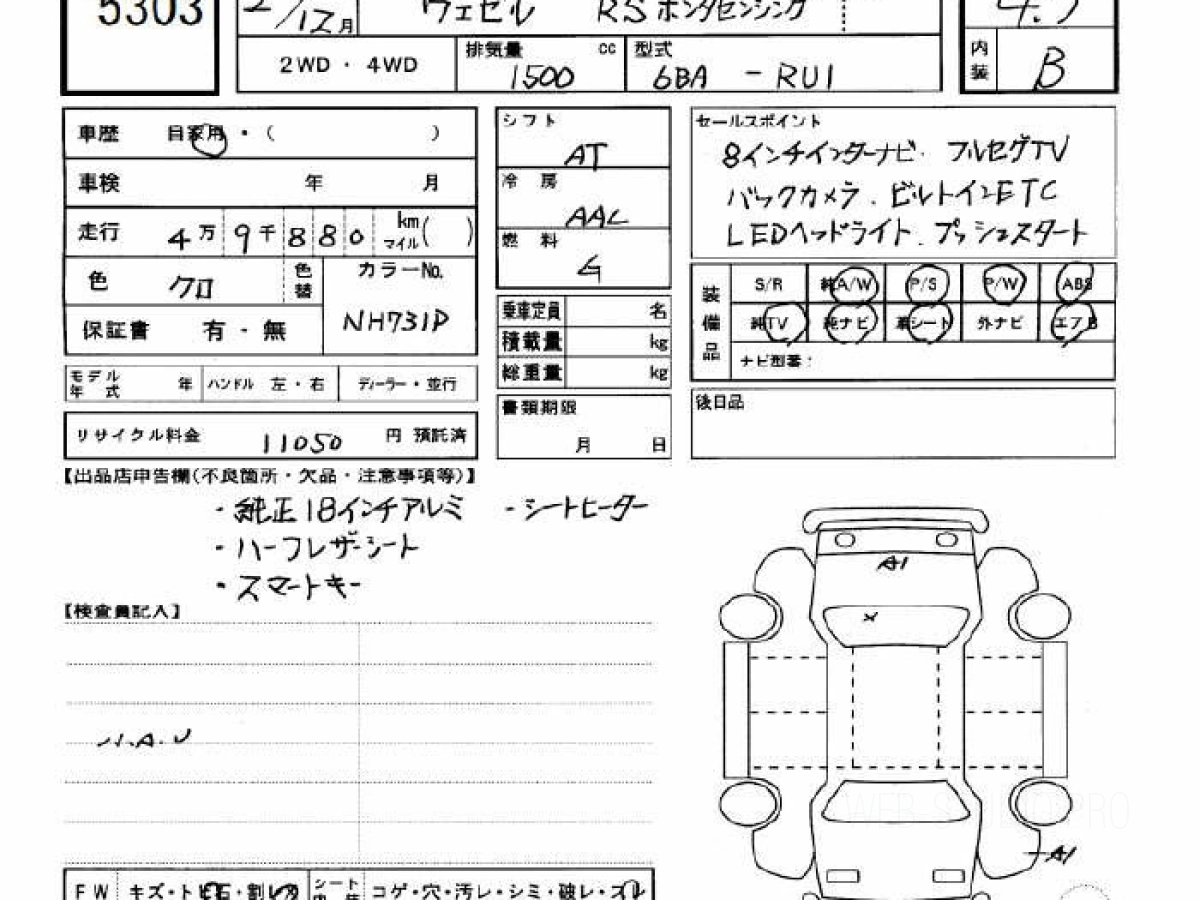 5303
2/12月
ヴェゼル RSホンダセンシング
4.5
2WD・4WD
排気量 cc 1500
型式 6BA - RU1
内装 B
車歴 自家用・( )
車検 年 月
走行 4万9千880 km マイル( )
色 クロ 色替 カラーNo. NH731P
保証書 有・無
モデル年式 年 ハンドル 左・右 ディーラー・並行
リサイクル料金 11050 円 預託済
シフト AT
冷房 AAC
燃料 G
乗車定員 名
積載量 kg
総重量 kg
書類期限 月 日
セールスポイント
8インチインターナビ. フルセグTV
バックカメラ. ビルトインETC
LEDヘッドライト. プッシュスタート
装備品 S/R 純A/W P/S P/W ABS
純TV 純ナビ 革シート 外ナビ エアB
ナビ型番:
後日品
【出品店申告欄(不良箇所・欠品・注意事項等)】
・純正18インチアルミ ・シートヒーター
・ハーフレザーシート
・スマートキー
【検査員記入】
A1
x
A1
WEB STUDIO PRO
FW キズ・トビ石・割レ
シート コゲ・穴・汚レ・シミ・破レ・スレ